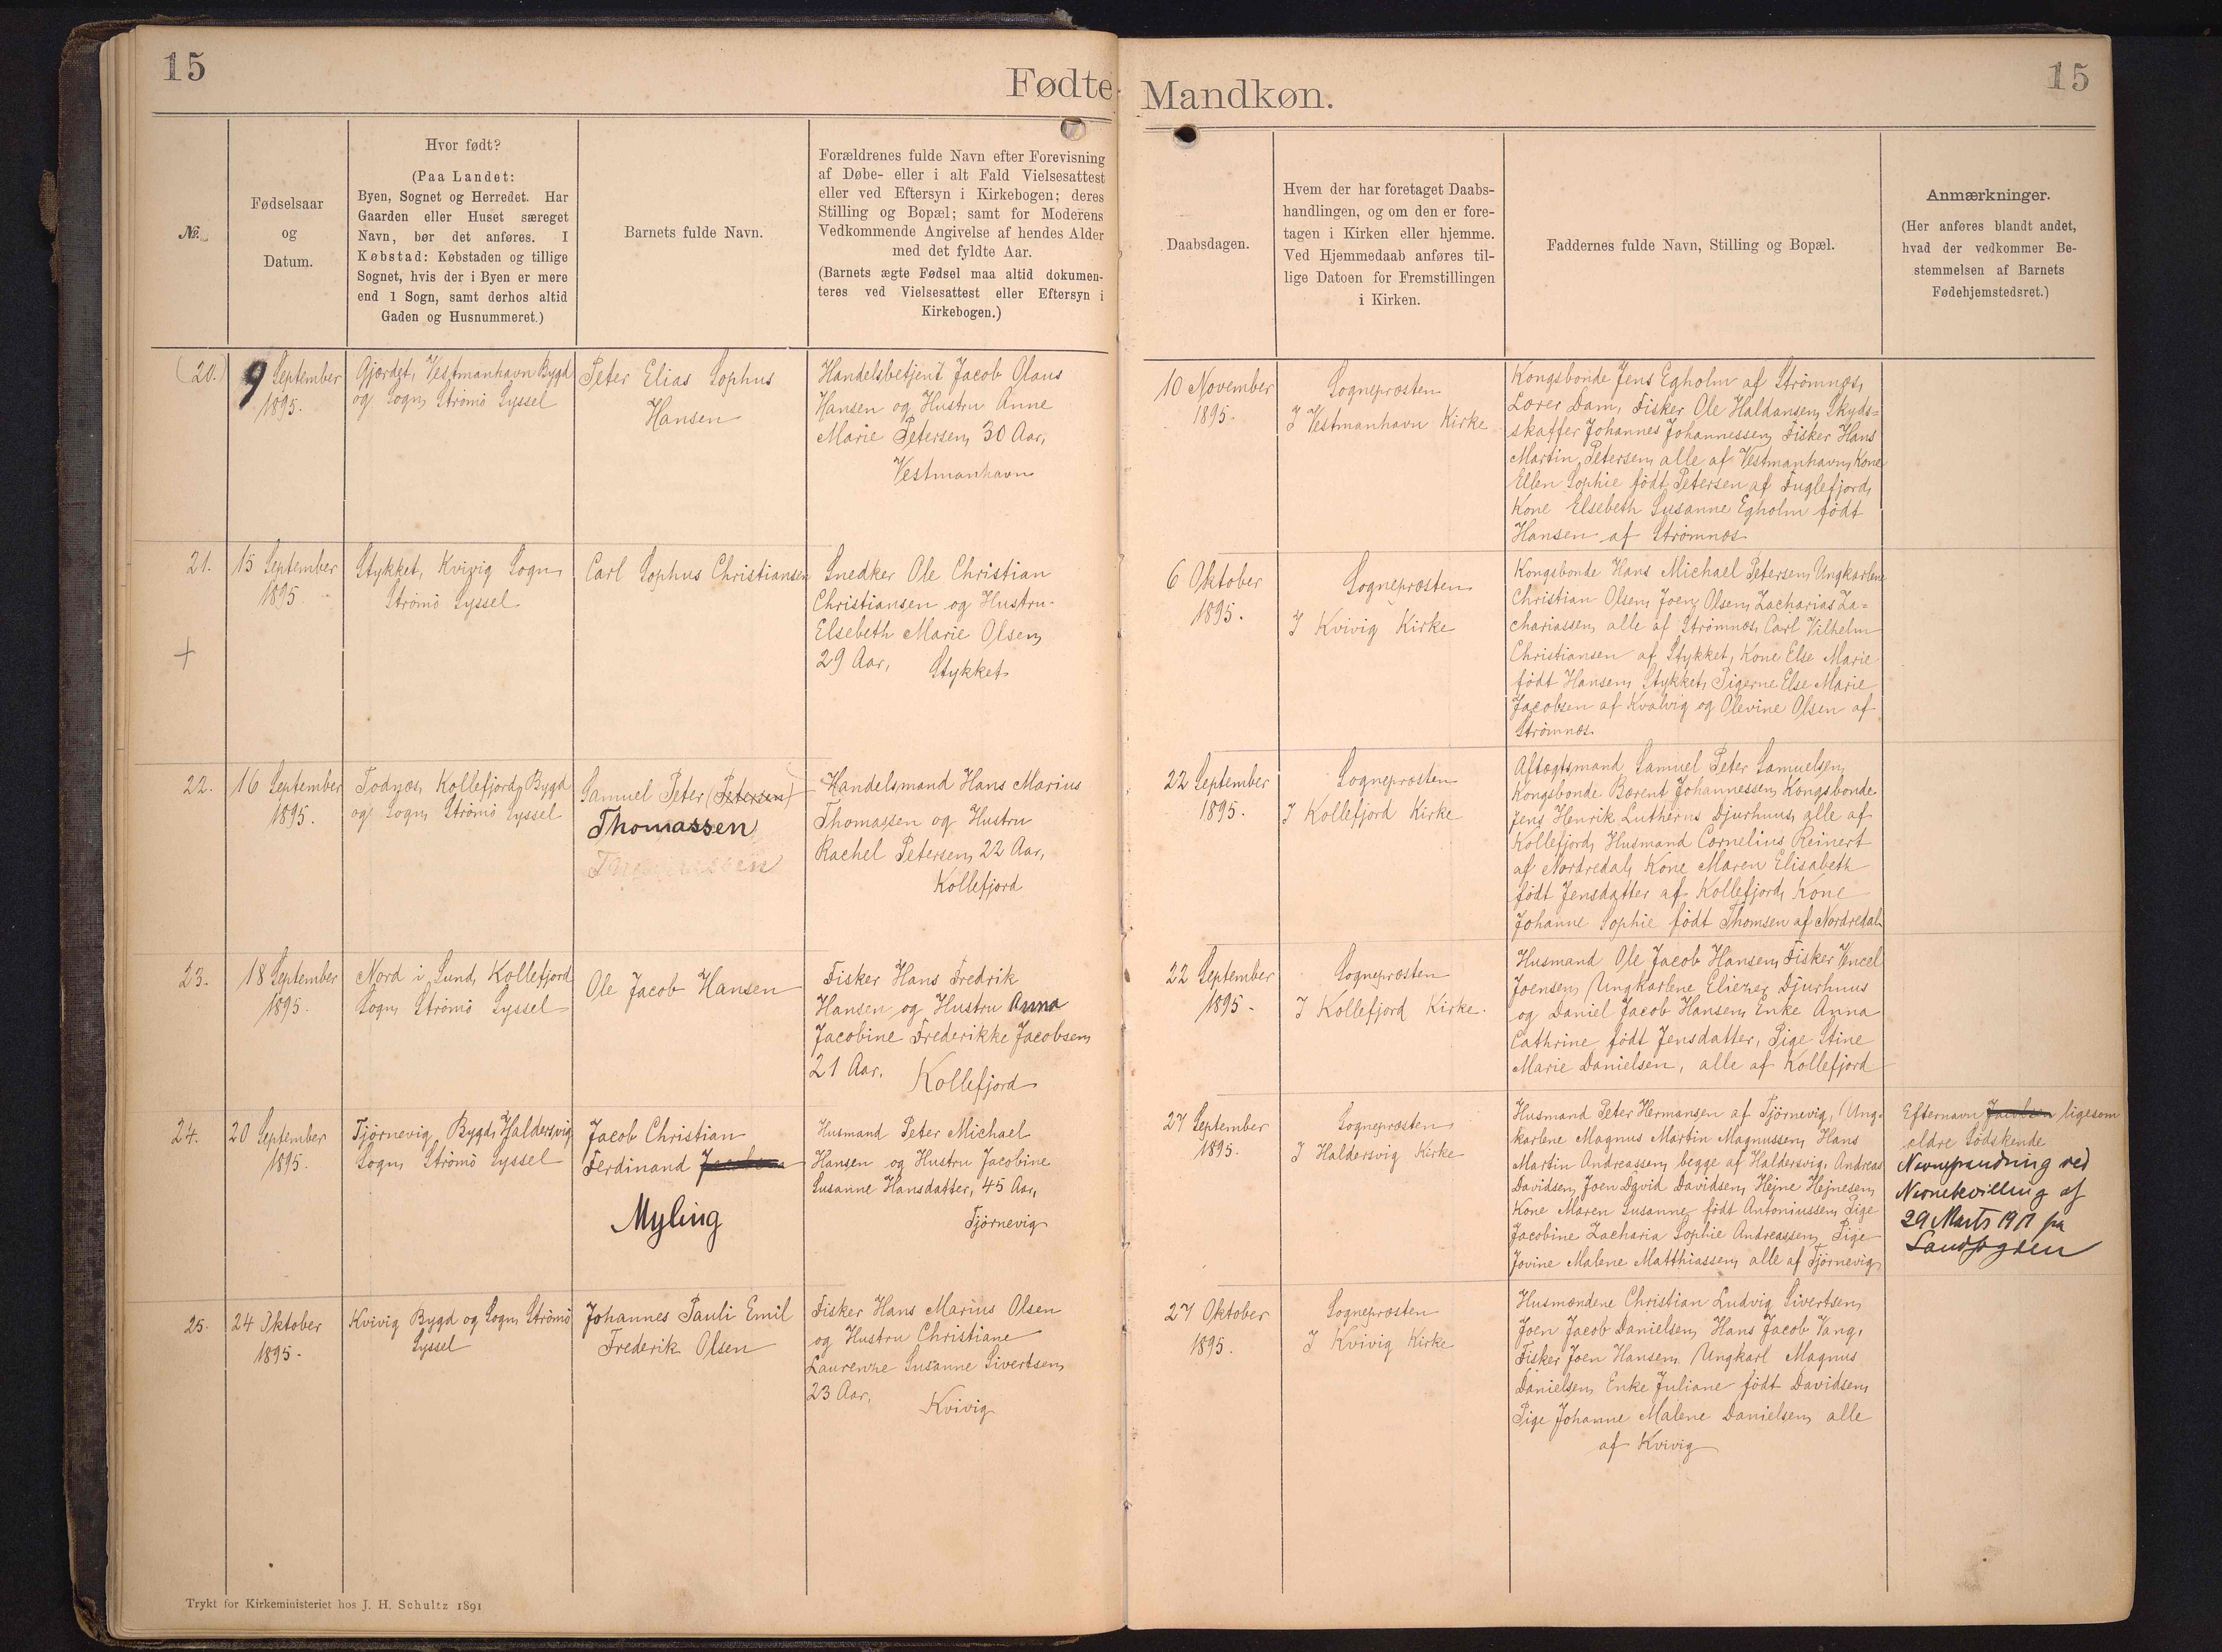 15
Fødte
Mandkøn.
15
№.
Fødselsaar
og
Datum.
Hvor født?
(Paa Landet:
Byen, Sognet og Herredet. Har
Gaarden eller Huset særeget
Navn, bør det anføres. I
Købstad: Købstaden og tillige
Sognet, hvis der i Byen er mere
end 1 Sogn, samt derhos altid
Gaden og Husnummeret.)
Barnets fulde Navn.
Forældrenes fulde Navn efter Forevisning
af Døbe- eller i alt Fald Vielsesattest
eller ved Eftersyn i Kirkebogen; deres
Stilling og Bopæl; samt for Moderens
Vedkommende Angivelse af hendes Alder
med det fyldte Aar.
(Barnets ægte Fødsel maa altid dokumen-
teres ved Vielsesattest eller Eftersyn i
Kirkebogen.)
Daabsdagen.
Hvem der har foretaget Daabs-
handlingen, og om den er fore-
tagen i Kirken eller hjemme.
Ved Hjemmedaab anføres til-
lige Datoen for Fremstillingen
i Kirken.
Faddernes fulde Navn, Stilling og Bopæl.
Anmærkninger.
(Her anføres blandt andet,
hvad der vedkommer Be-
stemmelsen af Barnets
Fødehjemstedsret.)
(20.)
9 September
1895.
Gjærdet, Vestmanhavn Bygd
og Sogn, Strömö Syssel
Peter Elias Sophus
Hansen
Handelsbetjent Jacob Olaus
Hansen og Hustru Anne
Marie Petersen, 30 Aar,
Vestmanhavn
10 November
1895.
Sognepræsten
I Vestmanhavn Kirke
Kongsbonde Jens Egholm af Strömnæs,
Lærer Dam, Fisker Ole Haldansen, Skyds=
skaffer Johannes Johannessen, Fisker Hans
Martin Petersen, alle af Vestmanhavn, Kone
Ellen Sophie född Petersen af Fuglefjord,
Kone Elsebeth Susanne Egholm född
Hansen af Strömnæs
21.
15 September
1895.
Stykket, Kvivig Sogn,
Strömö Syssel
Carl Sophus Christiansen
Snedker Ole Christian
Christiansen og Hustru
Elsebeth Marie Olsen,
29 Aar, Stykket
6 Oktober
1895.
Sognepræsten
I Kvivig Kirke
Kongsbonde Hans Michael Petersen, Ungkarlene
Christian Olsen, Joen Olsen, Zacharias Za=
chariassen, alle af Strömnæs, Carl Vilhelm
Christiansen af Stykket, Kone Else Marie
född Hansen, Stykket, Pigerne Else Marie
Jacobsen af Kvalvig og Olevine Olsen af
Strömnæs
+
22.
16 September
1895.
Todnæs, Kollefjord, Bygd
og Sogn, Strömö Syssel
Samuel Peter (Petersen)
Thomassen
Handelsmand Hans Marius
Thomassen og Hustru
Rachel Petersen, 22 Aar,
Kollefjord
22 September
1895.
Sognepræsten
I Kollefjord Kirke
Aftægtsmand Samuel Peter Samuelsen,
Kongsbonde Barent Johannessen, Kongsbonde
Jens Henrik Lutherus Djurhuus, alle af
Kollefjord, Husmand Cornelius Reinert
af Nordredal, Kone Maren Elisabeth
född Jensdatter af Kollefjord, Kone
Johanne Sophie född Thomsen af Nordredal
23.
18 September
1895.
Nord i Sund, Kollefjord
Sogn, Strömö Syssel
Ole Jacob Hansen
Fisker Hans Fredrik
Hansen og Hustru Anna
Jacobine Frederikke Jacobsen,
21 Aar. Kollefjord
22 September
1895.
Sognepræsten
I Kollefjord Kirke.
Husmand Ole Jacob Hansen, Fisker Vencel
Joensen, Ungkarlene Eliezer Djurhuus
og Daniel Jacob Hansen, Enke Anna
Cathrine född Jensdatter, Pige Stine
Marie Danielsen, alle af Kollefjord
24.
20 September
1895.
Tjörnevig Bygd, Haldersvig
Sogn, Strömö Syssel
Jacob Christian
Ferdinand
Myling
Husmand Peter Michael
Hansen og Hustru Jacobine
Susanne Hansdatter, 45 Aar,
Tjörnevig
27 September
1895.
Sognepræsten
I Haldersvig Kirke
Husmand Peter Hermansen af Tjörnevig, Ung=
karlene Magnus Martin Magnussen, Hans
Martin Andreassen, begge af Haldersvig, Andreas
Davidsen, Joen David Davidsen, Hejne Hejnesen,
Kone Maren Susanne född Antoniussen, Pige
Jacobine Zacharia Sophie Andreassen, Pige
Jovine Malene Matthiassen, alle af Tjörnevig
Efternavn Jacobsen ligesom
ældre Södskende
Navneforandring ved
Navnebevilling af
29 Marts 19
25.
24 Oktober
1895.
Kvivig Bygd og Sogn, Strömö
Syssel
Johannes Pauli Emil
Frederik Olsen
Fisker Hans Marius Olsen
og Hustru Christiane
Laurenze Susanne Sivertsen,
23 Aar, Kvivig
27 Oktober
1895.
Sognepræsten
I Kvivig Kirke
Husmændene Christian Ludvig Sivertsen,
Joen Jacob Danielsen, Hans Jacob Vang,
Fisker Joen Hansen, Ungkarl Magnus
Danielsen, Enke Juliane född Davidsen,
Pige Johanne Malene Danielsen, alle
af Kvivig
Trykt for Kirkeministeriet hos J. H. Schultz 1891